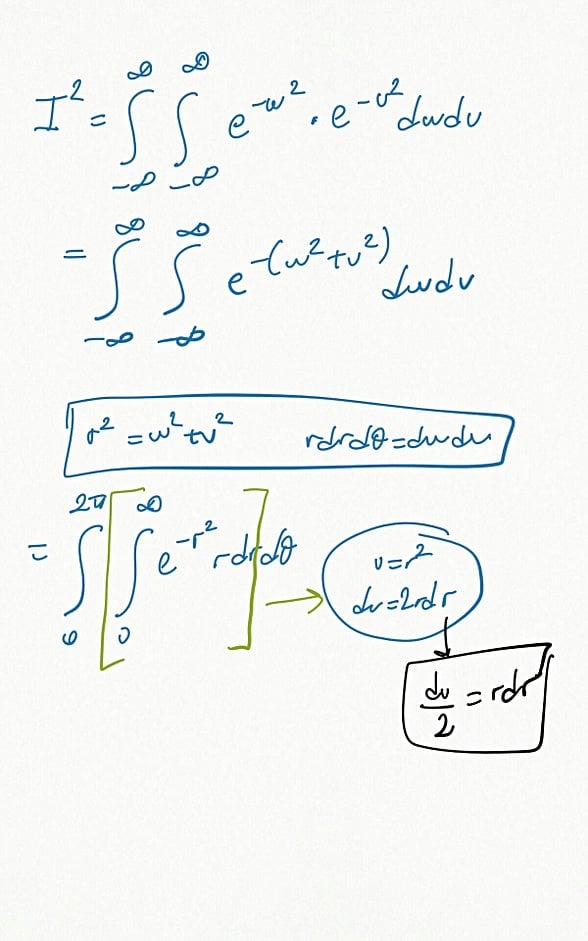 I² = ∫_{-∞}^{∞} ∫_{-∞}^{∞} e^{-w²} . e^{-v²} dwdv
= ∫_{-∞}^{∞} ∫_{-∞}^{∞} e^{-(w²+v²)} dwdv
r² = w²+v² rdrdθ = dwdv
= ∫_{0}^{2π} [ ∫_{0}^{∞} e^{-r²} rdrdθ ] →
v=r²
dv=2rdr
dv/2 = rdr